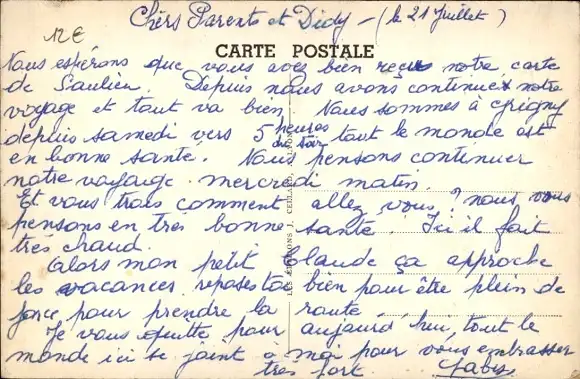 12€
Chers Parents et Didy - (le 21 Juillet)
CARTE POSTALE
Nous espérons que vous avez bien reçu notre carte
de Saulieu. Depuis nous avons continué notre
voyage et tout va bien. Nous sommes à Grigny
depuis samedi vers 5 heures du soir tout le monde est
en bonne santé. Nous pensons continuer
notre voyage mercredi matin.
Et vous trois comment allez vous? nous vous
pensons en très bonne santé. Ici il fait
très chaud.
Alors mon petit Claude ça approche
les vacances reposes toi bien pour être plein de
force pour prendre la route.
Je vous quitte pour aujourd'hui, tout le
monde ici se joint à moi pour vous embrasser
très fort.
LES EDITIONS J. CELLARD